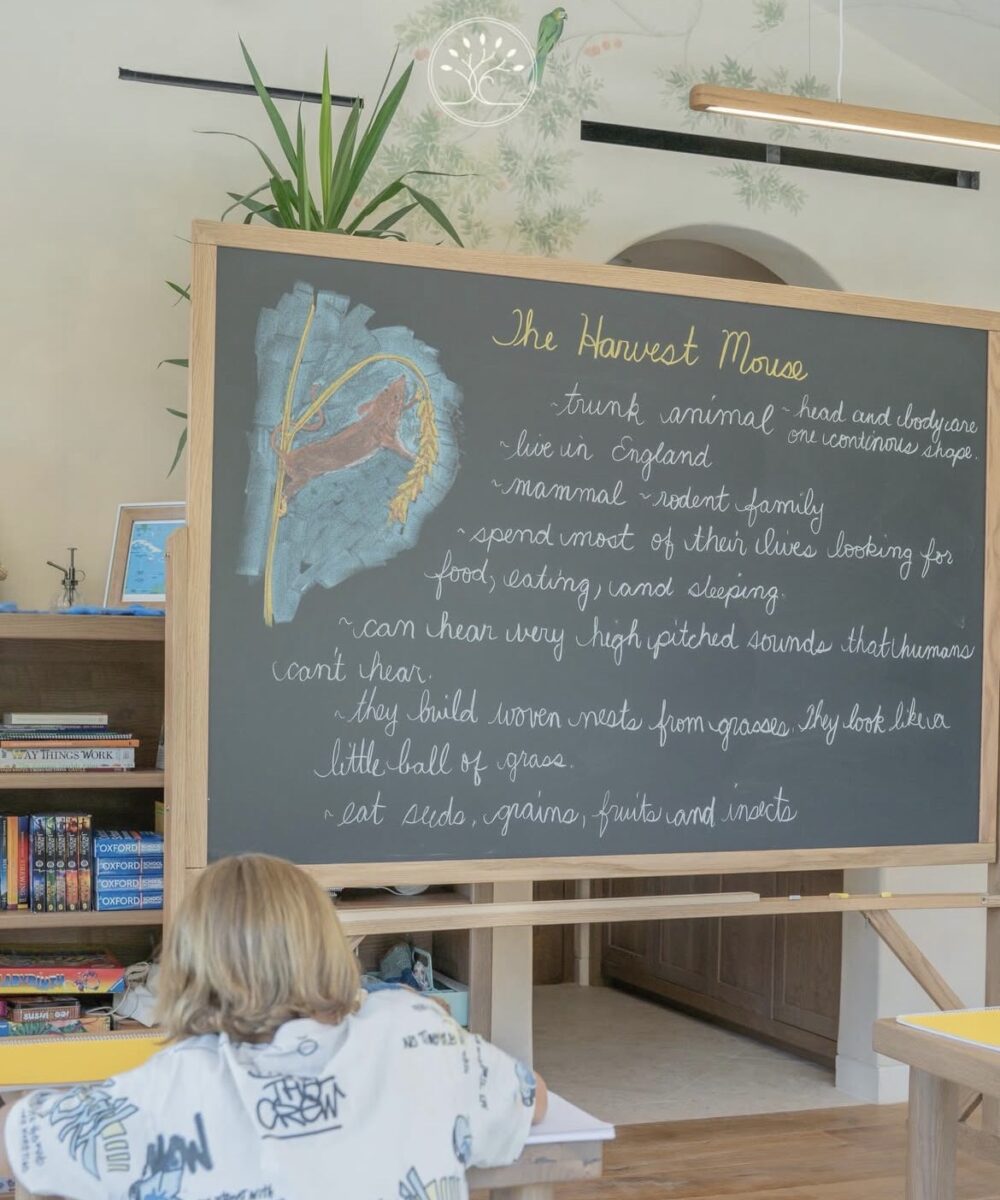 The Harvest Mouse
~trunk animal ~head and body are
one continous shape.
~live in England
~mammal ~rodent family
~spend most of their lives looking for
food, eating, and sleeping.
~can hear very high pitched sounds that humans
can't hear.
~they build woven nests from grasses. They look like a
little ball of grass.
~eat seeds, grains, fruits and insects
WAY THINGS WORK
OXFORD
OXFORD
OXFORD
OXFORD
LABYRINTH
THAT
CREW